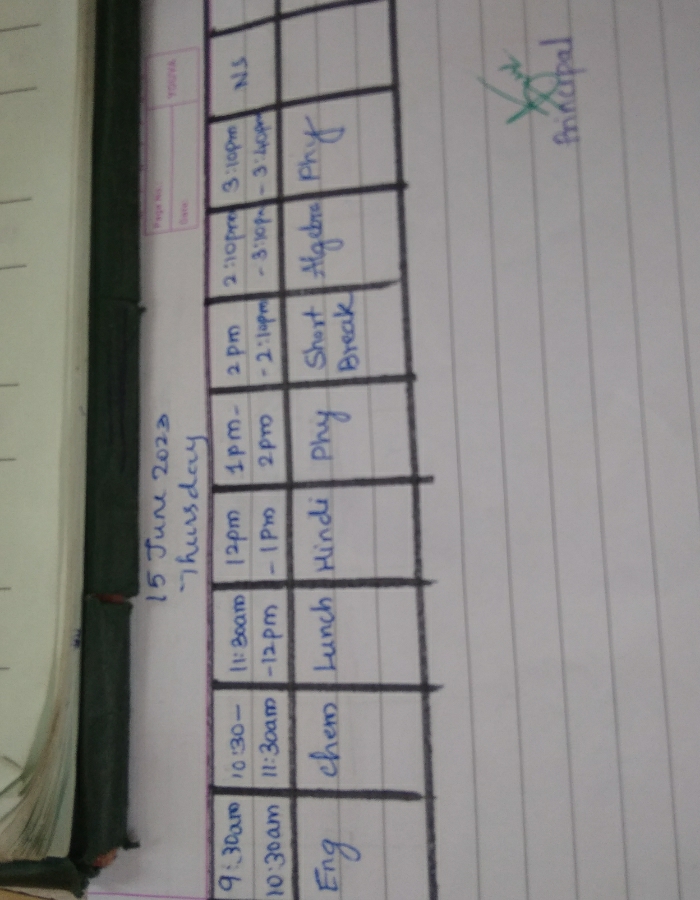 Page No.
Date:
YOUVA
15 June 2023
Thursday
9:30am 10:30am
10:30- 11:30am
11:30am -12pm
12pm -1pm
1pm- 2pm
2pm -2:10pm
2:10pm -3:10pm
3:10pm -3:40pm
NS
Eng
Chem
Lunch
Hindi
Phy
Short Break
Algebra
Phy
Principal